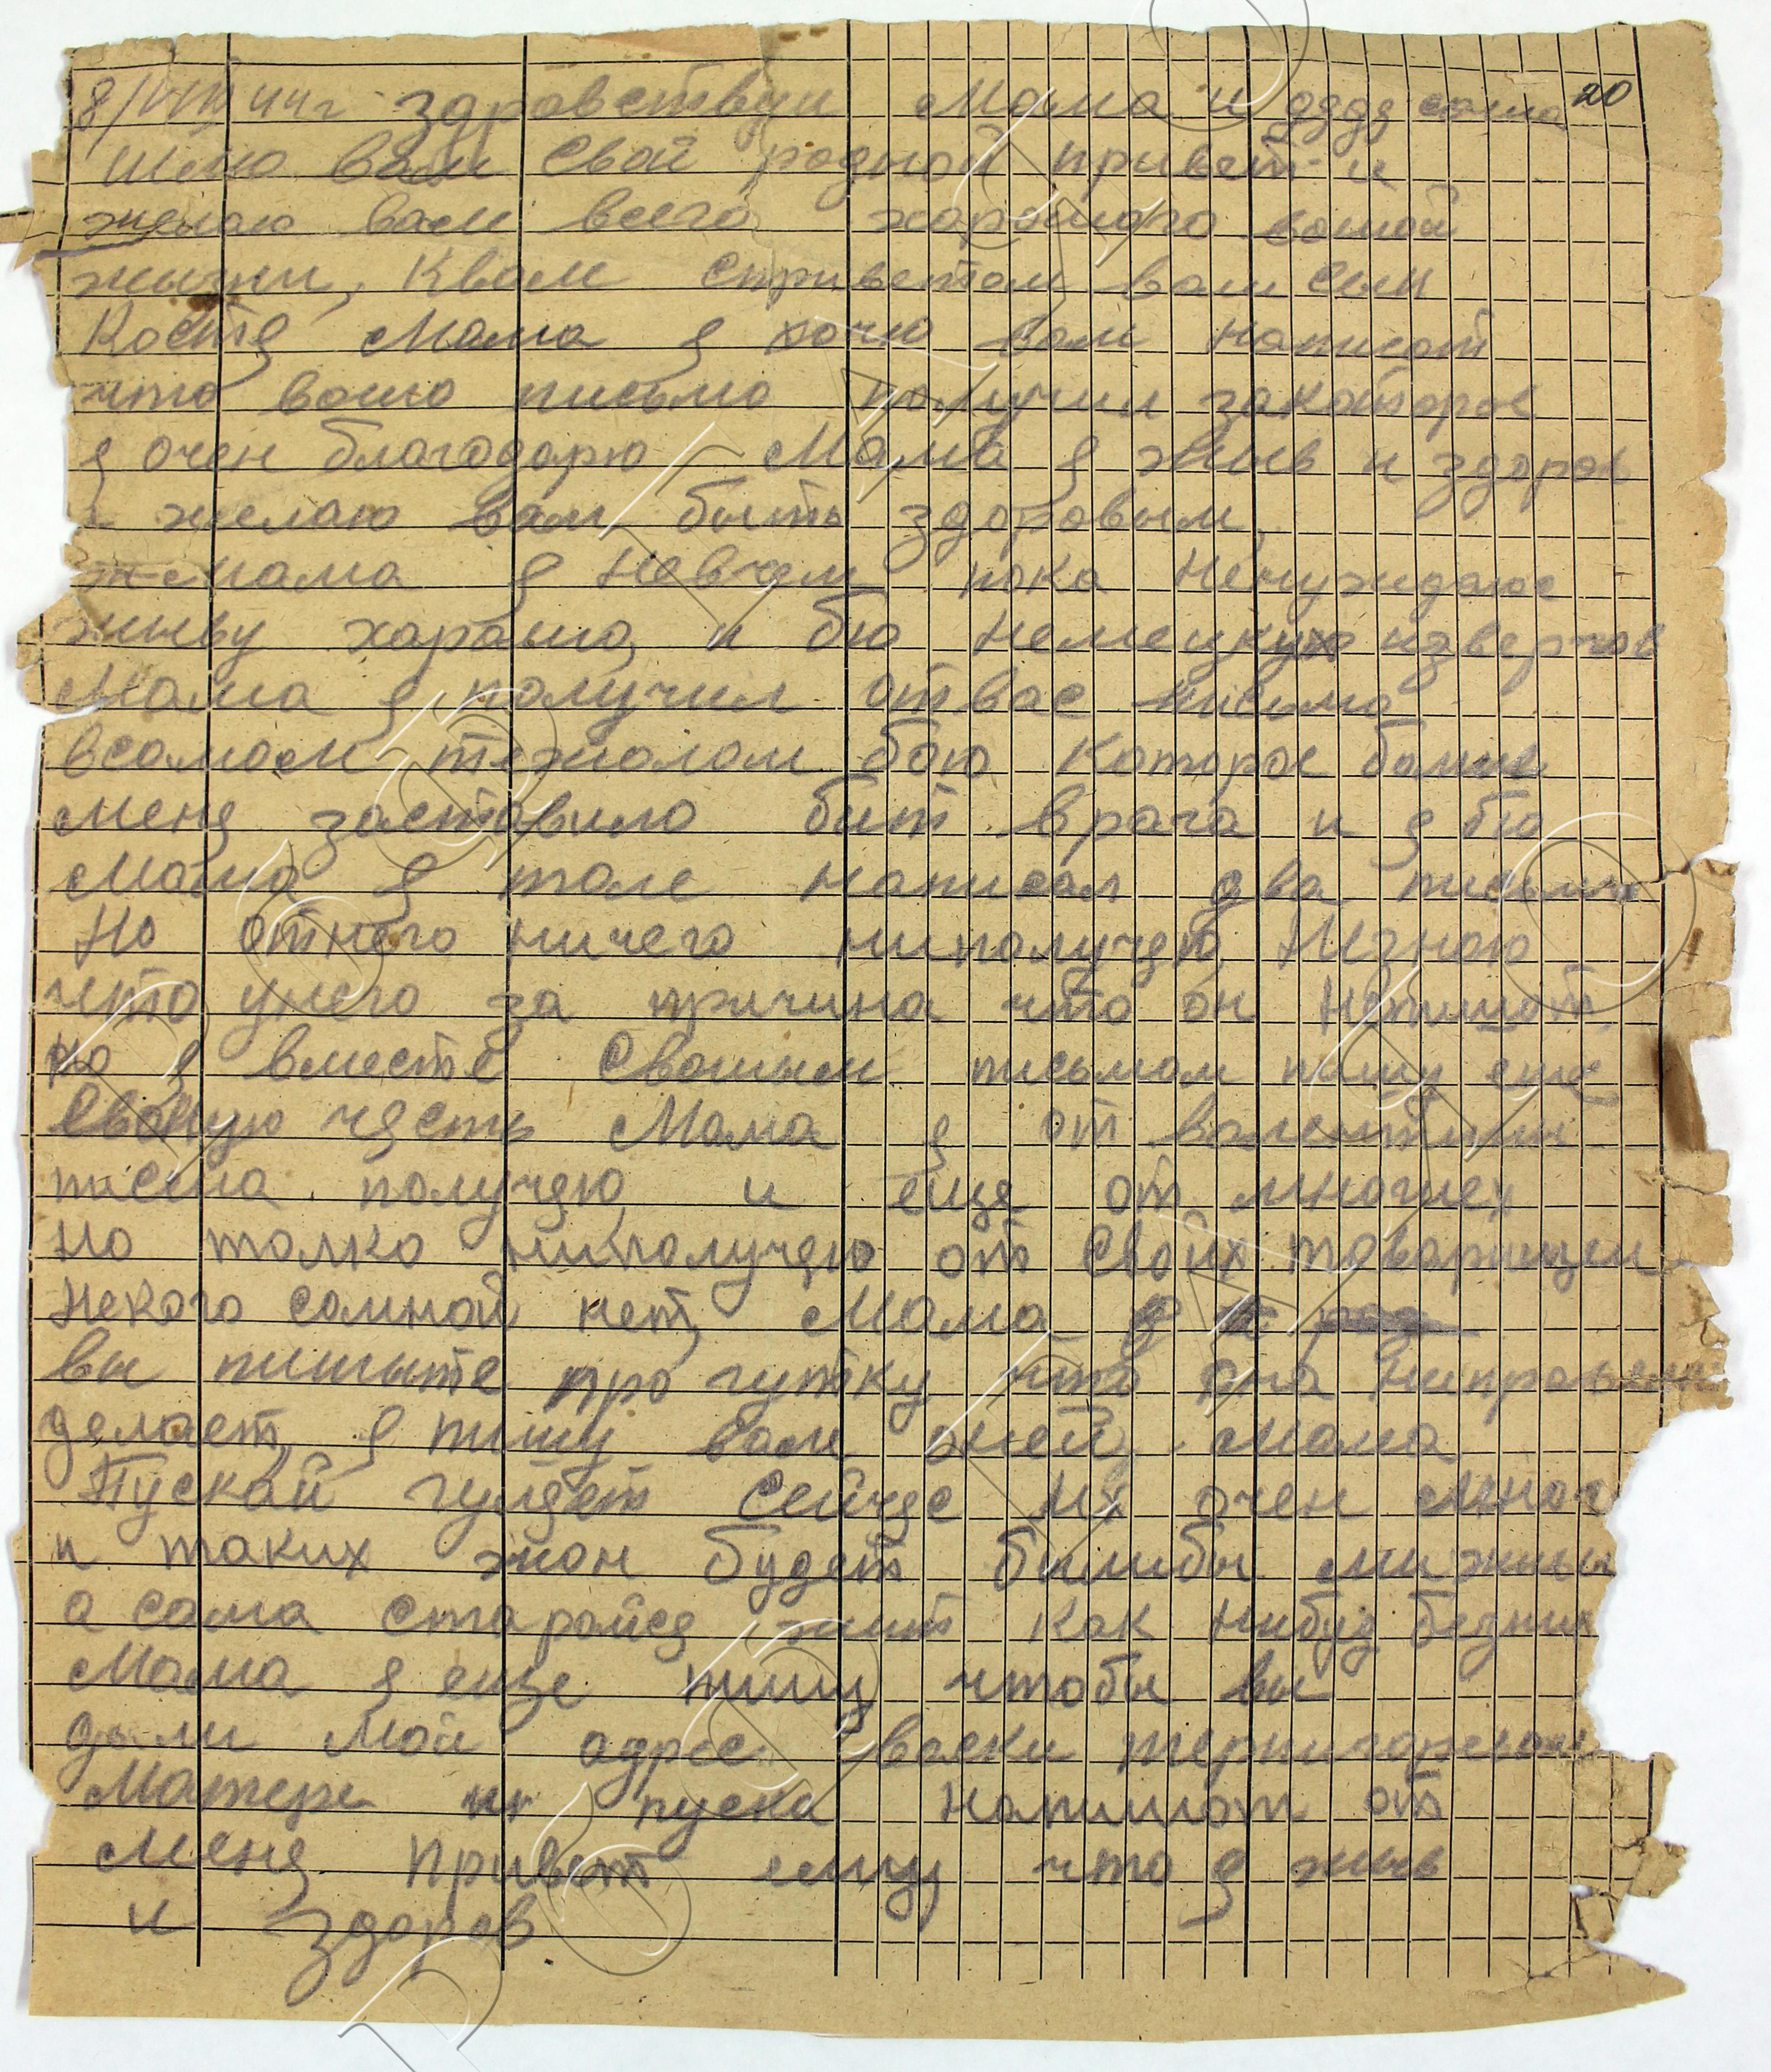 8/VIII 44г здравствуи Мама и дядя саша 20
Шлю вам Свой родной привет и
желаю вам всего хорошого вашой
жызни, Квам Спрьветом ваш Сын
Костя Мама я хочю вам написат
что вашо письмо получил закоторое
я очен благодарю Мама я жыв и здоров
и желаю вам быть здоровым,
Мама я невчем пока Ненуждаюс
жыву харашо, и бю немецкух извергов
Мама я получил отвас письмо
всамом тежолом бою Которое болше
меня заставило бит врага и я бю
Мама я толе написал два письма
Но отнего ничего ниполучяю, Незнаю
что унего за причина что он Непишот
но я вместе Свашым письмом пишу ему
Мама я от валентины
писма получяю и еще от многиех
но толко ниполучяю от Своих товарищеи
некого сомной нет, Мама
вы пишыте про гутку что она ниправельно
делает, я пишу вам оней, Мама
Пускай гуляет Сейчяс Их очен много
и таких жон будет билибы ми жывы
а сама старайся жит как нибуд безних
Мама я еще пишу чтобы вы
дали Мой адрес васки
Матере и пуска напишот от
Меня привет ему что я жыв
и здоров